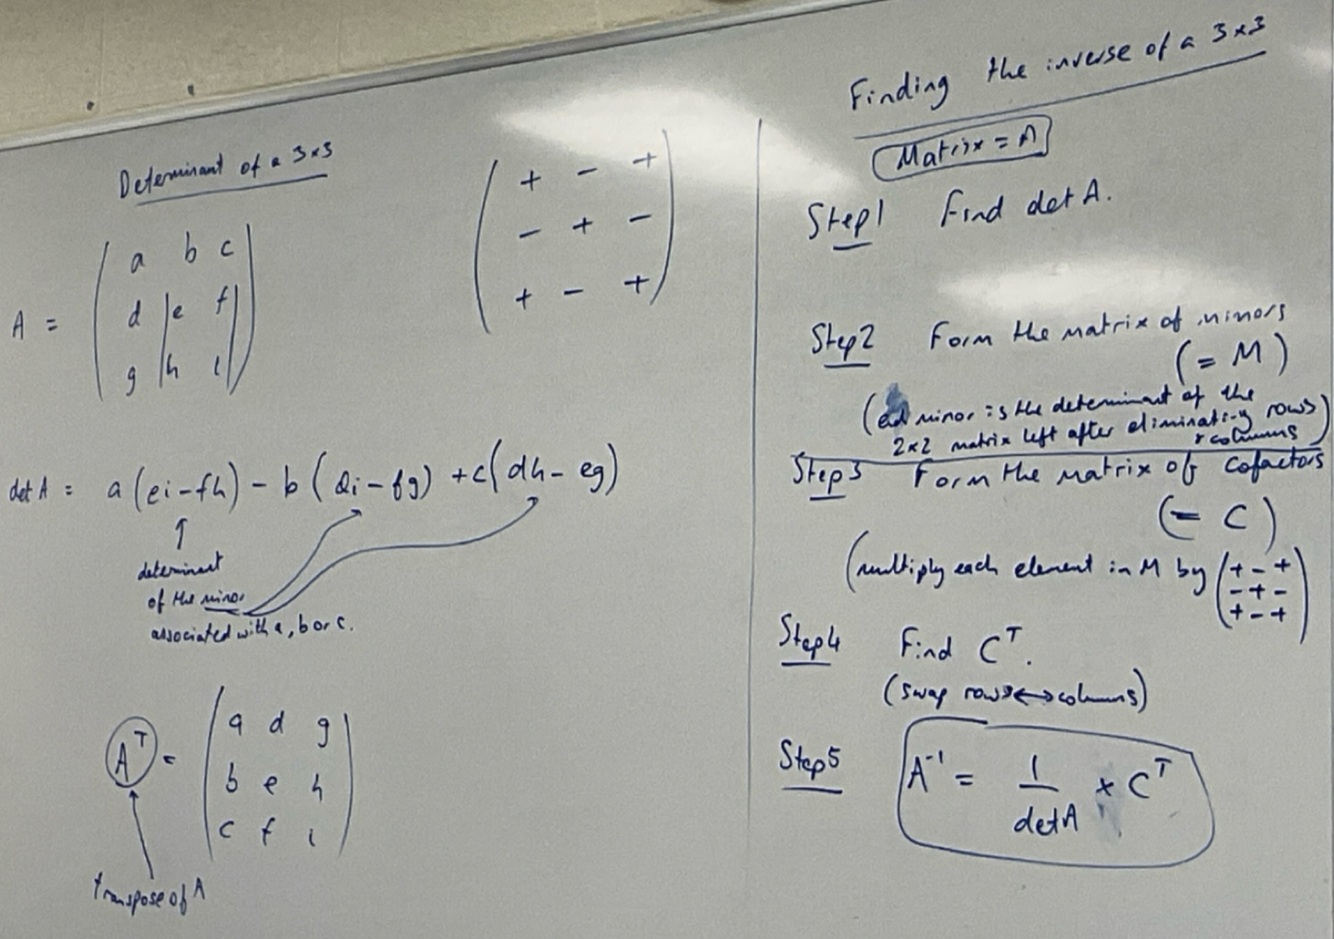 Determinant of a 3x3
A = ( a b c
d e f
g h i )
( + - +
- + -
+ - + )
det A = a(ei-fh) - b(di-fg) + c(dh-eg)
determinant
of the minor
associated with a, b or c.
A^T = ( a d g
b e h
c f i )
transpose of A
Finding the inverse of a 3x3
Matrix = A
Step1 Find det A.
Step2 Form the matrix of minors
(= M)
( minor is the determinant of the
2x2 matrix left after eliminating rows
+ columns)
Step3 Form the matrix of cofactors
(= C)
(multiply each element in M by ( + - +
- + -
+ - + )
Step4 Find C^T.
(swap rows↔columns)
Step5 A^-1 = 1/det A × C^T